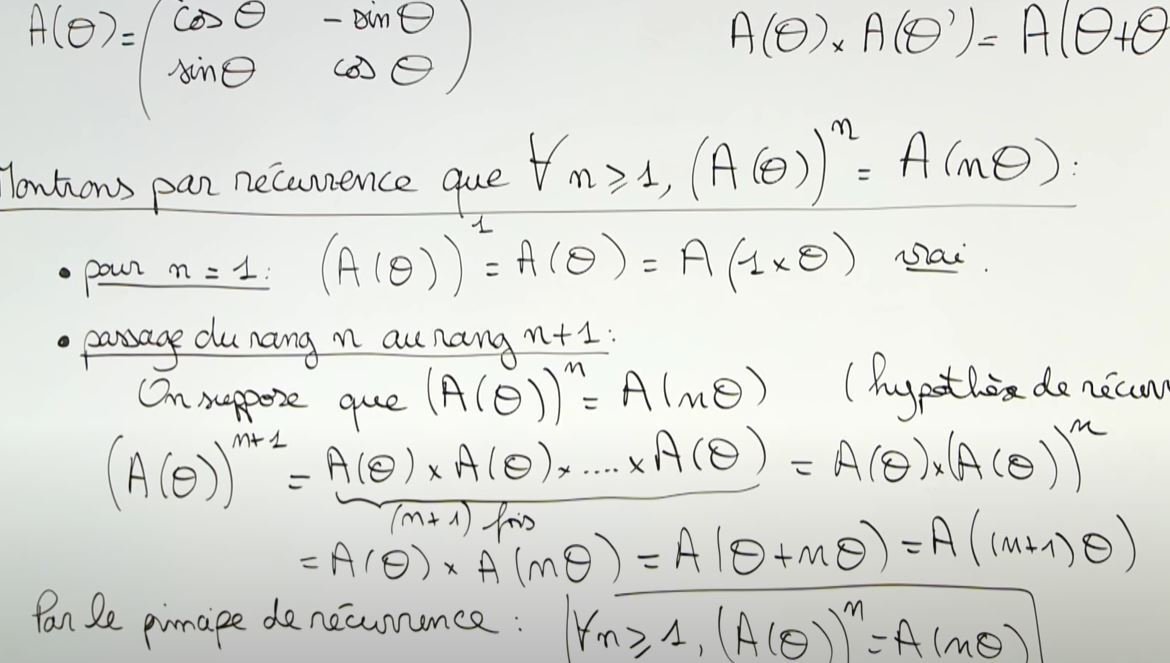 A(θ)= (cos θ  - sin θ
sin θ  cos θ)
A(θ)× A(θ')= A(θ+θ
Montrons par récurrence que ∀ n⩾1, (A(θ))^n = A(nθ):
• pour n = 1: (A(θ))^1 = A(θ) = A(1×θ) vrai.
• passage du rang n au rang n+1:
On suppose que (A(θ))^n = A(nθ) (hypothèse de récurr
(A(θ))^n+1 = A(θ)×A(θ)×....×A(θ) = A(θ)×(A(θ))^n
(n+1) fois
= A(θ)× A(nθ) = A(θ+nθ) = A((n+1)θ)
Par le principe de récurrence: ∀n⩾1, (A(θ))^n = A(nθ)